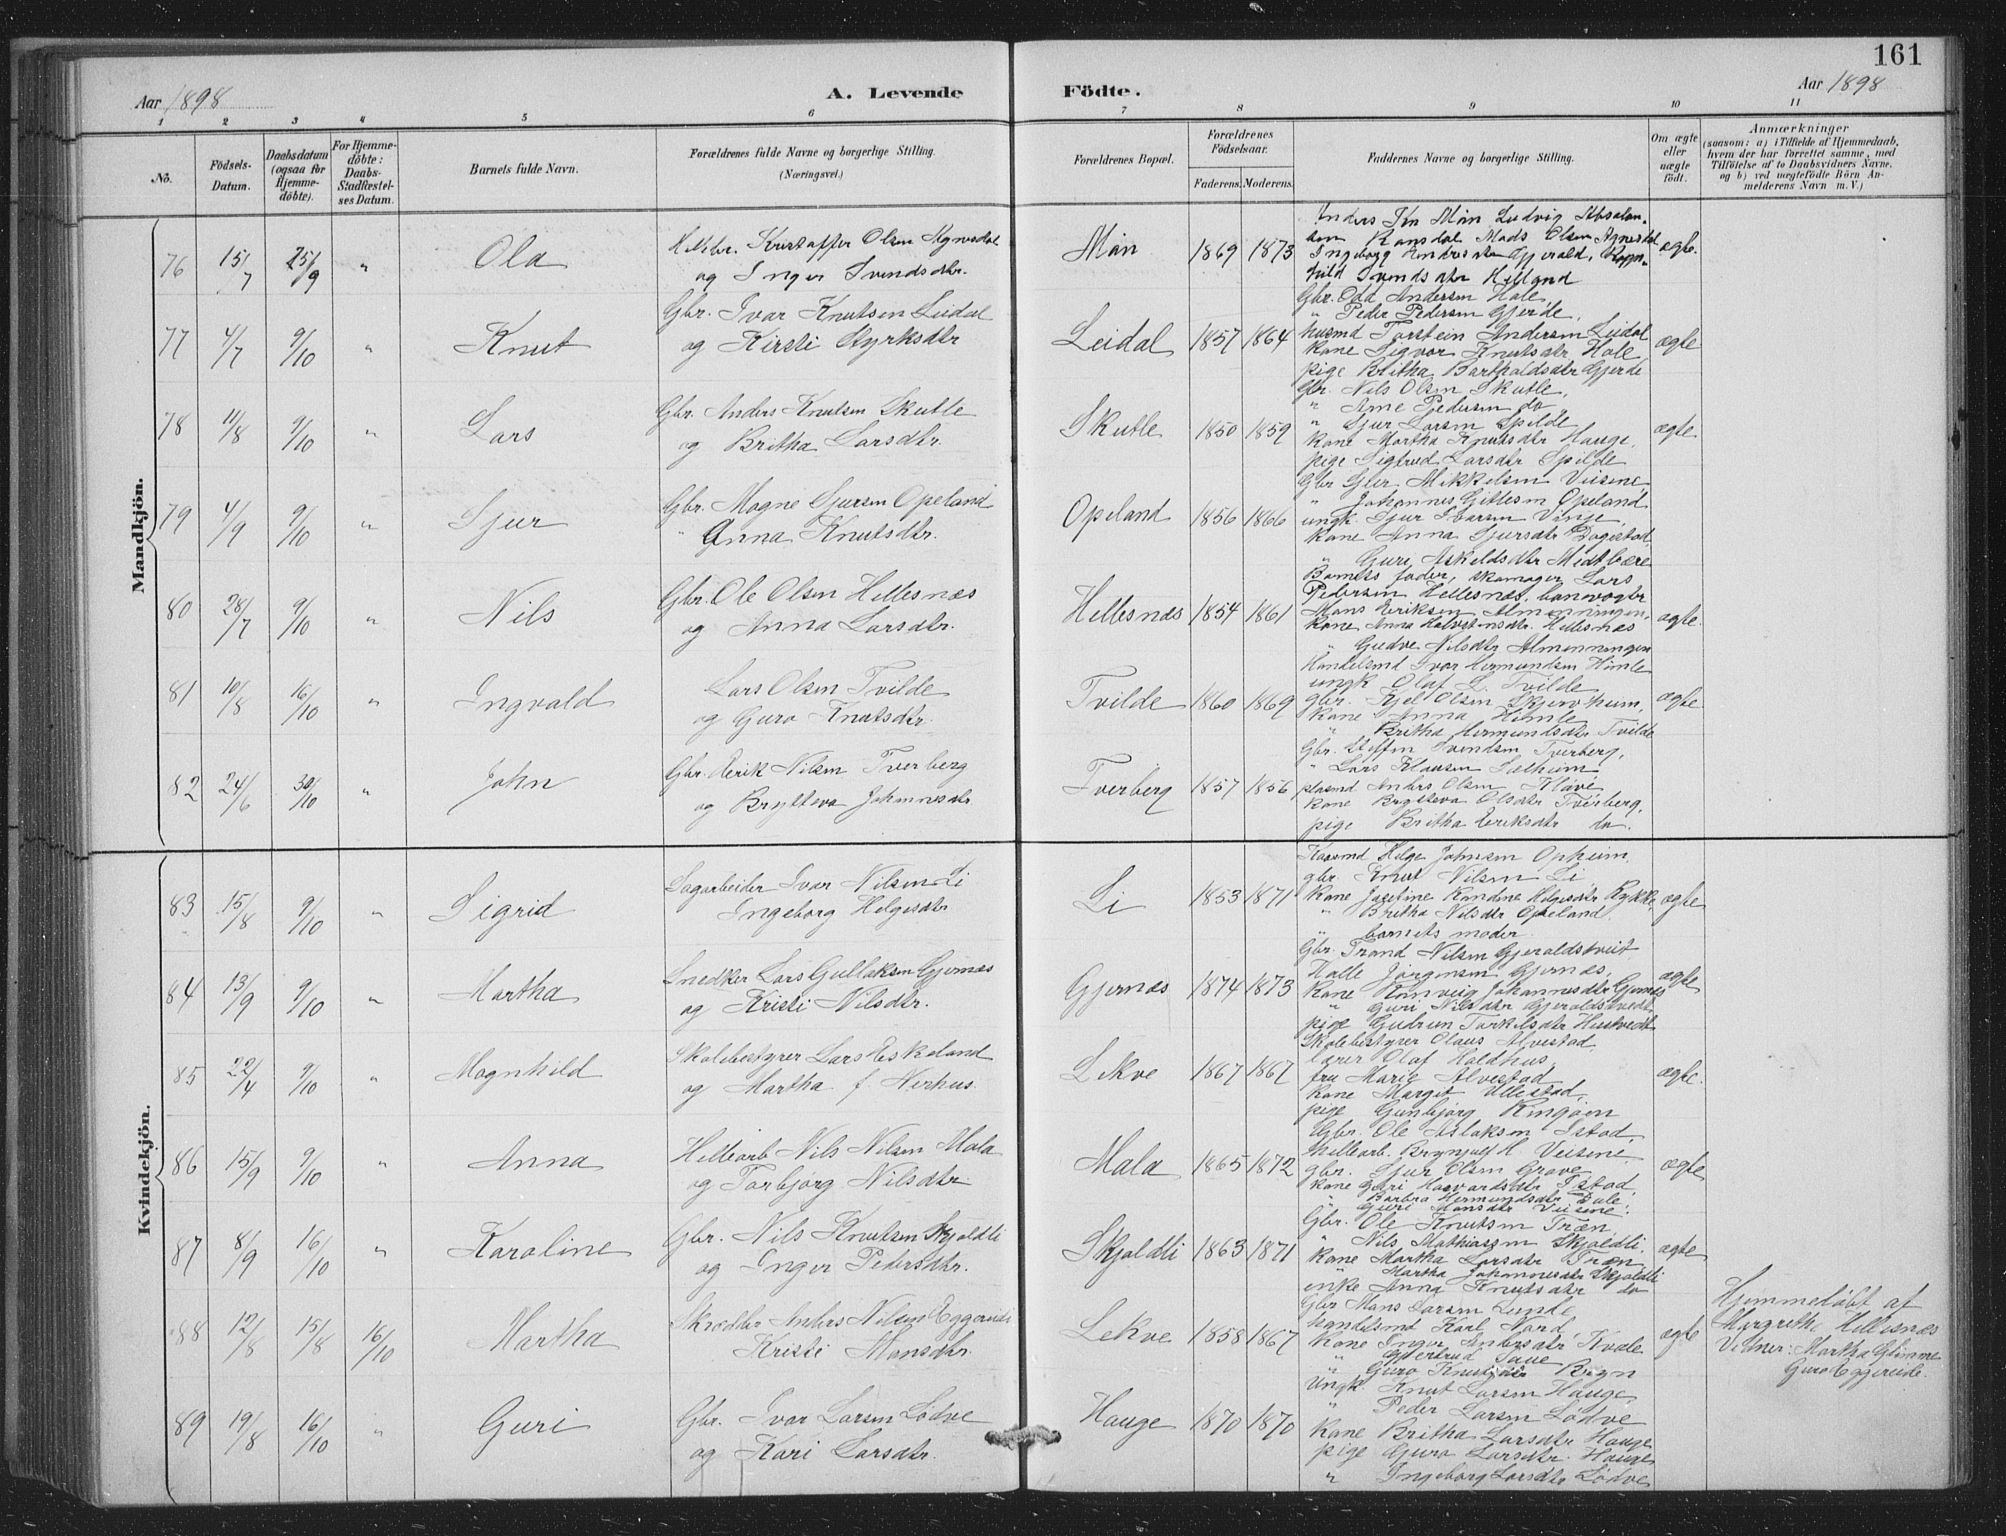 161
Aar 1898
A. Levende
Födte.
Aar 1898
1 2 3 4 5 6 7 8 9 10 11
No.
Födsels-Datum.
Daabsdatum (ogsaa for Hjemme-döbte).
For Hjemme-döbte: Daabs-Stadfæstel-ses Datum.
Barnets fulde Navn.
Forældrenes fulde Navne og borgerlige Stilling.
(Næringsvei.)
Forældrenes Bopæl.
Forældrenes Födselsaar.
Faderens. Moderens.
Faddernes Navne og borgerlige Stilling.
Om ægte eller uægte födt.
Anmærkninger
(saasom: a) i Tilfælde af Hjemmedaab, hvem der har forrettet samme, med Tilföielse af to Daabsvidners Navne, og b) ved uægtefödte Börn Anmelderens Navn m. V.)
Mandkjön.
76 15/7 25/9 " Ola
Kristoffer Olsen
og Inger Svendsdtr.
Møn 1869 1873
Mads Olsen
ægte.
77 4/7 9/10 " Knut
Gbr. Ivar Knutsen Leidal
og Kirsti
Leidal 1857 1864
Gbr. Odd Andersen Hole,
" Peder Pedersen Gjerde,
husmd Torstein Andersen Leidal
kone Sigvor Knutsdtr Hole
pige Britha Bartholdsdtr Gjerde
ægte
78 11/8 9/10 " Lars
Gbr. Anders Knutsen Skutle
og Britha Larsdtr.
Skutle 1850 1859
Gbr. Nils Olsen Skutle,
" Arne Pedersen do,
" Sjur Larsen Spilde,
kone Martha Knutsdtr Hauge,
pige Sigtrud Larsdtr Spilde
ægte
79 4/9 9/10 " Sjur
Gbr. Magne Sjursen Opeland
" Anna Knutsdtr.
Opeland 1856 1866
Mikkelsen
" Johannes Gitlesen Opeland
ungk. Sjur Ivarsen Vinje
kone Anna Sjursdtr Dagestad,
" Guri Askeldsdtr Midtbære
80 28/7 9/10 " Nils
Gbr. Ole Olsen Hellesnæs
og Anna Larsdtr.
Hellesnæs 1854 1861
Barnets fader, skomager Lars
Pedersen Hellesnæs, banevogter
Mons Eriksen Almenningen,
kone Anna Halvstensdtr. Hellesnæs
" Gudve Nilsdtr Almenningen
ægte.
81 10/8 16/10 " Ingvald
Lars Olsen Tvilde
og Guro Knutsdtr.
Tvilde 1860 1869
Handelsmd Ivar Hermundsen Himle
ungk Olaf L. Tvilde
gbr. Kjel Olsen Skjervheim,
kone Anna Himle
" Britha Hermundsdtr Tvilde
ægte.
82 24/6 30/10 " John
Gbr. Eerik Nilsen Tverberg
og Brytteva Johannesdtr
Tverberg 1857 1856
Gbr. Steffen Svendsen Tverberg,
" Lars Klausen Solheim
plasmd Anders Olsen Kläve
kone Brytteva Olsdtr Tverberg,
pige Britha Eriksdtr do.
Kvindekjön.
83 15/8 9/10 " Sigrid
Sagarbeider Ivar Nilsen Li
Ingeborg Helgesdtr
Li 1853 1871
Helge Johnsen Opheim,
gbr. Knut Nilsen Li
kone Josefine Helgesdtr Rykke,
" Britha Nilsdtr Opeland
" barnets moder.
ægte
84 13/9 9/10 " Martha
Snedker Lars Gullaksen Gjernæs
og Kristi Nilsdtr.
Gjernæs 1874 1873
Gbr. Trond Nilsen Gjeraldstveit
Halle Jørgensen Gjernæs,
kone Ranveig Johannesdtr Gjernæs
" Guri Nilsdtr Gjeraldstvedt
pige Gudrun Torkelsdtr Hustvedt
ægte
85 22/4 9/10 " Magnhild
Skolebestyrer Lars Eskeland
og Martha f. Nerhus.
Lekve 1867 1867
Skolebestyrer Olaus Alvestad,
lærer Olaf Holdhus,
fru Marie Alvestad
kone Margit Ullestad,
pige Gunbjørg Ringøen
ægte.
86 15/9 9/10 " Anna
Hellearb Nils Nilsen Mala
og Torbjørg Nilsdtr.
Mala 1865 1872
Gbr. Ole Aslaksen Istad,
hellearb. Brynjulf H Veisene
gbr. Sjur Olsen Grove
kone Guri Havardsdtr Istad,
" Barbra Hermundsdtr
" Guri Monsdtr Veisene.
ægte
87 8/9 16/10 " Karoline
Gbr. Nils Knutsen Skjoldli
og Inger Pedersdtr.
Skjoldli 1863 1871
Gbr. Ole Knutsen Træn
" Nils Mathiassen Skjoldli,
kone Martha Larsdtr Træn,
Martha Johannesdtr Skjoldli
enke Anna Knutsdtr do
ægte
88 12/8 15/8 16/10 Martha
Skrædder Anders Nilsen Eggereide
Kristi Monsdtr.
Lekve 1858 1867
Gbr Mons Larsen Lunde
handelsmd Karl Nord
kone Inger Andersdtr Kvale
" Gjertrud
" Guro Knutsdtr Rogn
ægte
Hjemmedøbt af
Margrethe Hellesnæs
Vidner: Martha Glimme
Guro Eggereide.
89 19/8 16/10 " Guri
Gbr. Ivar Larsen Lødve
og Kari Larsdtr.
Hauge 1870 1870
Ungk Knut Larsen Hauge,
" Peder Larsen Lødve
kone Britha Larsdtr Hauge
pige Guro Larsdtr. Hauge
" Ingeborg Larsdtr Lødve